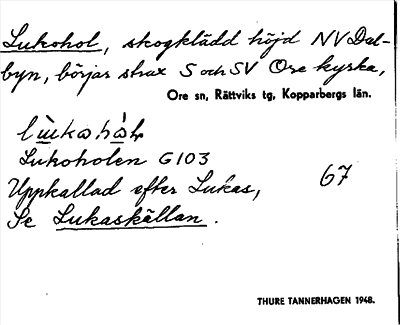 Lukohol, skogklädd höjd NV Dal-
byn, börjar strax S och SV Ore kyrka,
Ore sn, Rättviks tg, Kopparbergs län.
Lukoholen G103
67
Uppkallad efter Lukas,
Se Lukaskällan.
THURE TANNERHAGEN 1948.